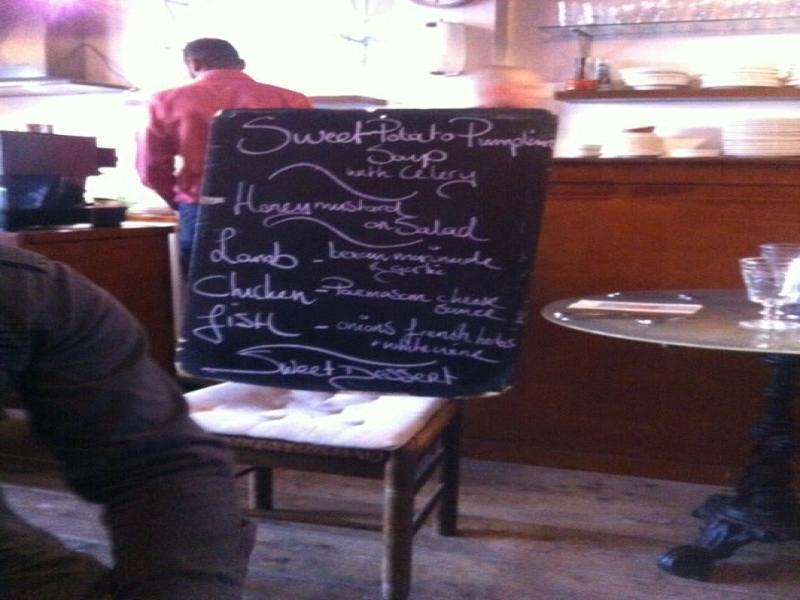 Sweet Potato Pumpkin
Soup
with Celery
Honeymustard
on Salad
Lamb - marinade
& garlic
Chicken - Parmasan cheese
sauce
Fish - onions french herbs
+ white wine
Sweet Dessert